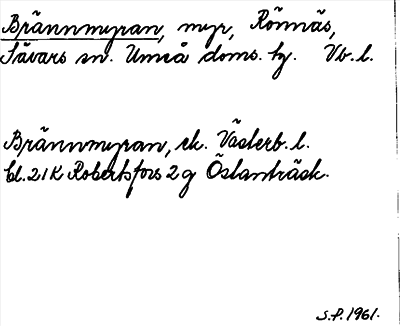 Brännmyran, myr, Rönnäs,
Sävars sn. Umeå doms. tg. Vb. l.
Brännmyran, ek. Västerb. l.
bl. 21K Robertsfors 2g Östanträsk.
S.P. 1961.